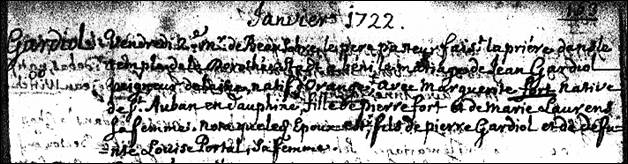 Janvier 1722. 163
Gardiol. Vendredi 2e Mr. de Beausobre le pere pasteur fais.t la priére dans le
temple de la Dorothée a béni le mariage de Jean Gardiol
natif d'Orange, avec Marguerite fort native
de St. Auban en dauphiné, fille de pierre fort et de marie Laurens
sa femme. nota que led. Epoux est fils de pierre Gardiol et de défun
-te Louise Portal, sa femme.